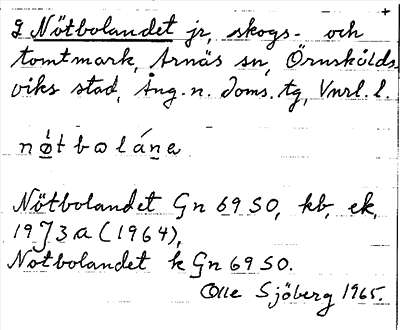 g Nötbolandet jr, skogs- och
tomtmark, Arnäs sn, Örnskölds-
viks stad, Ång. n. doms. tg, Vnrl. l.
nø̀tbɷláne
Nötbolandet Gn 6950, kb, ek,
19J3a (1964),
Nötbolandet k Gn 6950.
Olle Sjöberg 1965.